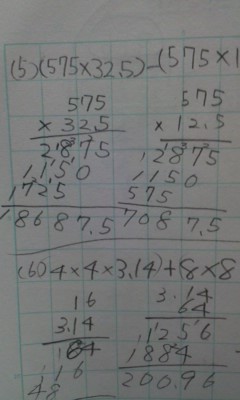 (5)(575×32.5)-(575×1
575 575
×32.5 ×12.5
2875 2875
1150 1150
1725 575
18687.5 7087.5
(6)4×4×3.14)+8×8
16 3.14
3.14 64
64 1256
16 1884
48 200.96